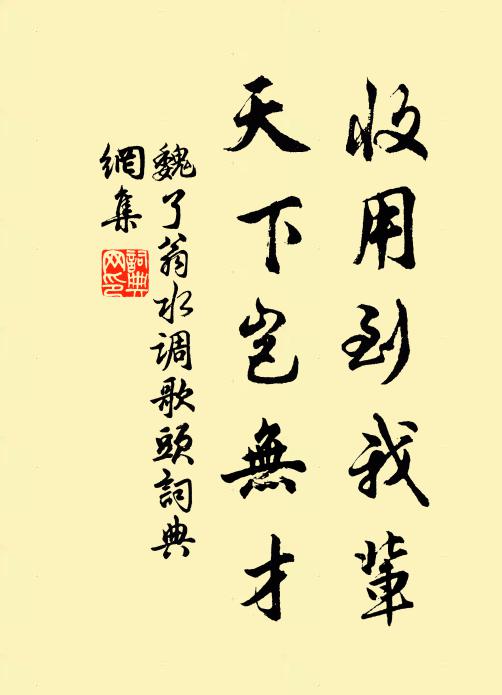 收用到我輩
天下豈無才
魏了翁水调歌頭詞典
網集
詞典
网印